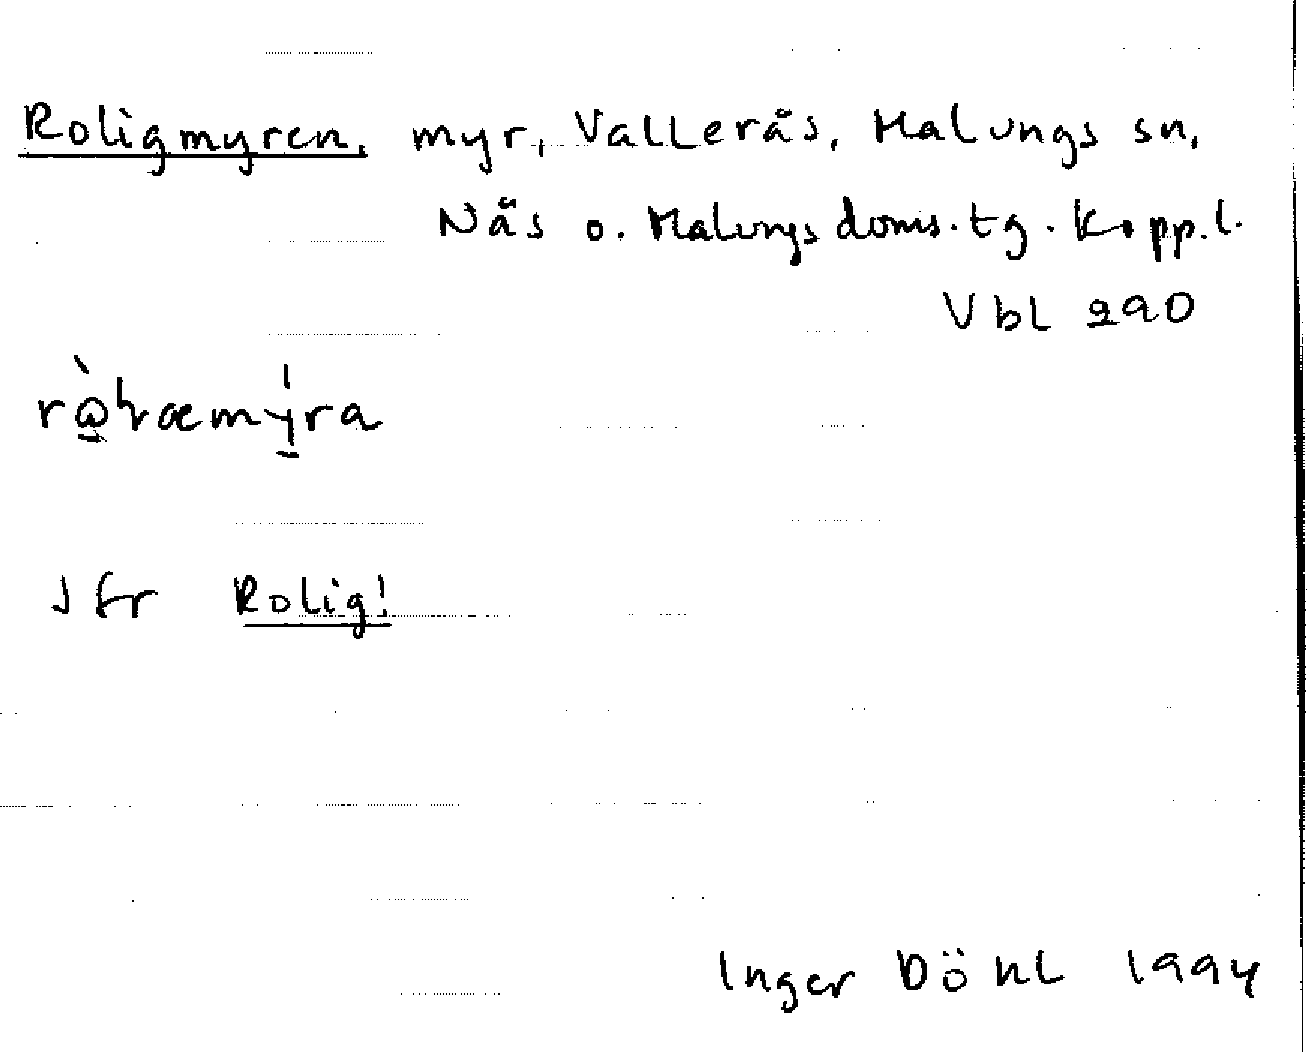 Roligmyren, myr, Vallerås, Malungs sn,
Näs o. Malungs doms. tg. Kopp. l.
Vbl 290
Jfr Rolig!
Inger Döhl 1994